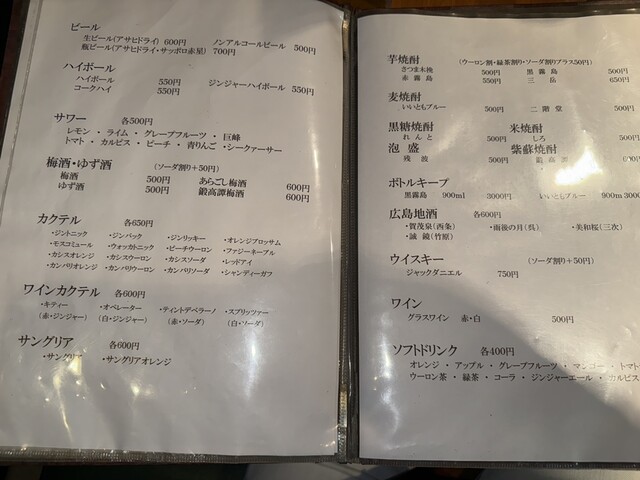 ビール
生ビール(アサヒドライ) 600円 ノンアルコールビール 500円
瓶ビール(アサヒドライ・サッポロ赤星) 700円
ハイボール
ハイボール 550円 ジンジャーハイボール 550円
コークハイ 550円
サワー 各500円
レモン ・ ライム ・ グレープフルーツ ・ 巨峰
トマト ・ カルピス ・ ピーチ ・ 青りんご ・シークァーサー
梅酒・ゆず酒 (ソーダ割り+50円)
梅酒 500円 あらごし梅酒 600円
ゆず酒 500円 鍛高譚梅酒 600円
カクテル 各650円
・ジントニック ・ジンバック ・ジンリッキー ・オレンジブロッサム
・モスコミュール ・ウォッカトニック ・ピーチウーロン ・ファジーネーブル
・カシスオレンジ ・カシスウーロン ・カシスソーダ ・レッドアイ
・カンパリオレンジ ・カンパリウーロン ・カンパリソーダ ・シャンディーガフ
ワインカクテル 各600円
・キティー ・オペレーター ・ティントデベラーノ ・スプリッツァー
(赤・ジンジャー) (白・ジンジャー) (赤・ソーダ) (白・ソーダ)
サングリア 各600円
・サングリア ・サングリアオレンジ
芋焼酎 (ウーロン割・緑茶割り・ソーダ割りプラス50円)
さつま木挽 500円 黒霧島 500円
赤霧島 550円 三岳 650円
麦焼酎
いいともブルー 500円 二階堂 500円
黒糖焼酎 米焼酎
れんと 500円 しろ 500円
泡盛 紫蘇焼酎
残波 500円 鍛高譚
ボトルキープ
黒霧島 900ml 3000円 いいともブルー 900m 3000
広島地酒 各600円
・賀茂泉(西条) ・雨後の月(呉) ・美和桜(三次)
・誠鏡(竹原)
ウイスキー (ソーダ割り+50円)
ジャックダニエル 750円
ワイン
グラスワイン 赤・白 500円
ソフトドリンク 各400円
オレンジ ・ アップル ・ グレープフルーツ ・ マンゴー ・ トマト
ウーロン茶 ・ 緑茶 ・ コーラ ・ ジンジャーエール ・ カルピス